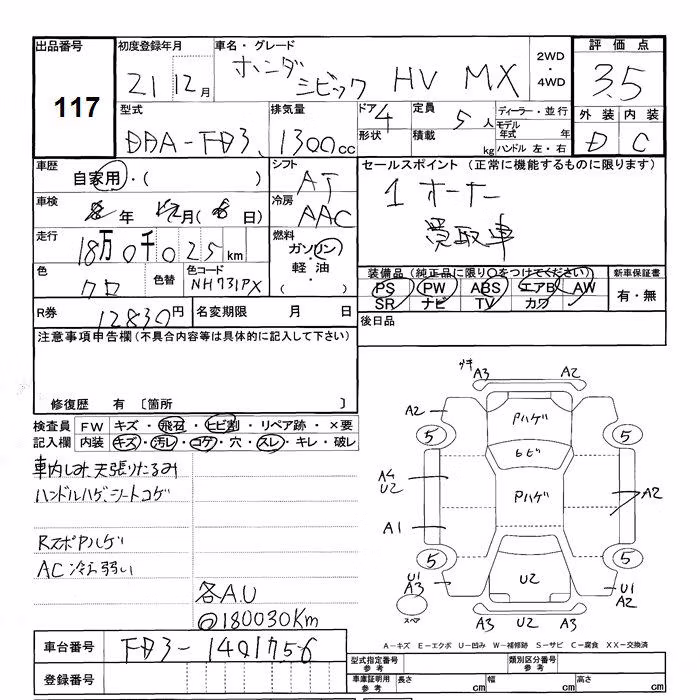 出品番号 初度登録年月 車名・グレード 評価点
117 21 12月 ホンダ シビック HV MX 2WD ・ 4WD 3.5
型式 排気量 ドア 4 定員 5人 ディーラー・並行 外装 内装
DAA-FD3 1300cc 形状 積載 kg モデル年式 年 ハンドル 左・右 D C
車歴 自家用・( ) シフト AT セールスポイント (正常に機能するものに限ります)
車検 年 月( 日) 冷房 AAC 1オーナー
走行 18万0千025km 燃料 ガソリン・軽油・ 買取車
色 クロ 色替 色コード NH731PX 装備品(純正品に限り○をつけてください) 新車保証書
PS PW ABS エアB AW 有・無
SR ナビ TV カワ
R券 12830円 名変期限 月 日 後日品
注意事項申告欄(不具合内容等は具体的に記入して下さい)
修復歴 有 〔箇所 〕
検査員 FW キズ・飛石・ヒビ割・リペア跡・×要
記入欄 内装 キズ・汚レ・コゲ・穴・スレ・キレ・破レ
車内しみ 天張りたるみ
ハンドルハゲ、シートコゲ
RスポPハゲ
AC冷え弱い
各A.U
@180030Km
A3 A2
A2 Pハゲ
5 5
ヒビ
A4 U2 Pハゲ A2
A1
5 5
U1 A3 U2 U1 A2
スペア A3 U2 A3
A−キズ E−エクボ U−凹み W−補修跡 S−サビ C−腐食 XX−交換済
車台番号 FD3-1401756
登録番号
型式指定番号 参考 類別区分番号 参考
車庫証明用 参考 長さ cm 幅 cm 高さ cm